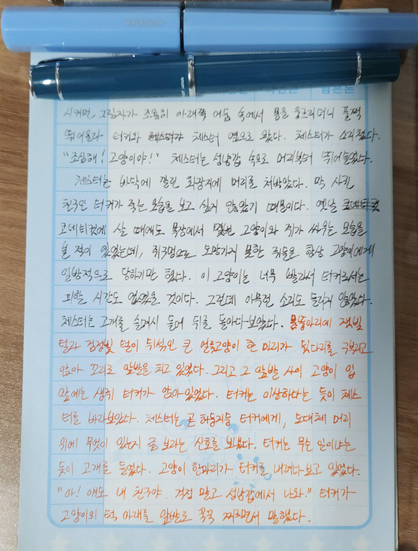 시커먼 그림자가 조용히 아래쪽 어둠 속에서 몸을 웅크리더니 훌쩍
뛰어올라 터커와 체스터 옆으로 왔다. 체스터가 소리쳤다.
"조심해! 고양이야!" 체스터는 성냥갑 속으로 머리부터 뛰어들었다.
체스터는 바닥에 깔린 화장지에 머리를 처박았다. 막 사귄
친구인 터커가 죽는 모습을 보고 싶지 않았기 때문이다. 옛날
코네티컷에 살 때에도 목장에서 몇번 고양이와 쥐가 싸우는 모습을
본 적이 있었는데, 쥐구멍으로 도망가지 못한 쥐들은 항상 고양이에게
일방적으로 당하기만 했다. 이 고양이는 너무 빨라서 터커로서는
피할 시간도 없었을 것이다. 그런데 아무런 소리도 들리지 않았다.
체스터는 고개를 살며시 들어 뒤를 돌아다보았다. 잿빛
털과 검정빛 털이 뒤섞인 큰 얼룩고양이 한 마리가 뒷다리를 구부리고
앉아 꼬리로 앞발을 치고 있었다. 그리고 그 앞발 사이 고양이 입
앞에는 생쥐 터커가 앉아 있었다. 터커는 이상하다는 듯이 체스
터를 바라보았다. 체스터는 곧 허둥지둥 터커에게, 도대체 머리
위에 무엇이 있는지 좀 보라는 신호를 보냈다. 터커는 무슨 일이냐는
듯이 고개를 들었다. 고양이 한마리가 터커를 내려다보고 있었다.
"아! 얘도 내 친구야. 걱정 말고 성냥갑에서 나와." 터커가
고양이의 턱 아래를 앞발로 톡톡 치면서 말했다.